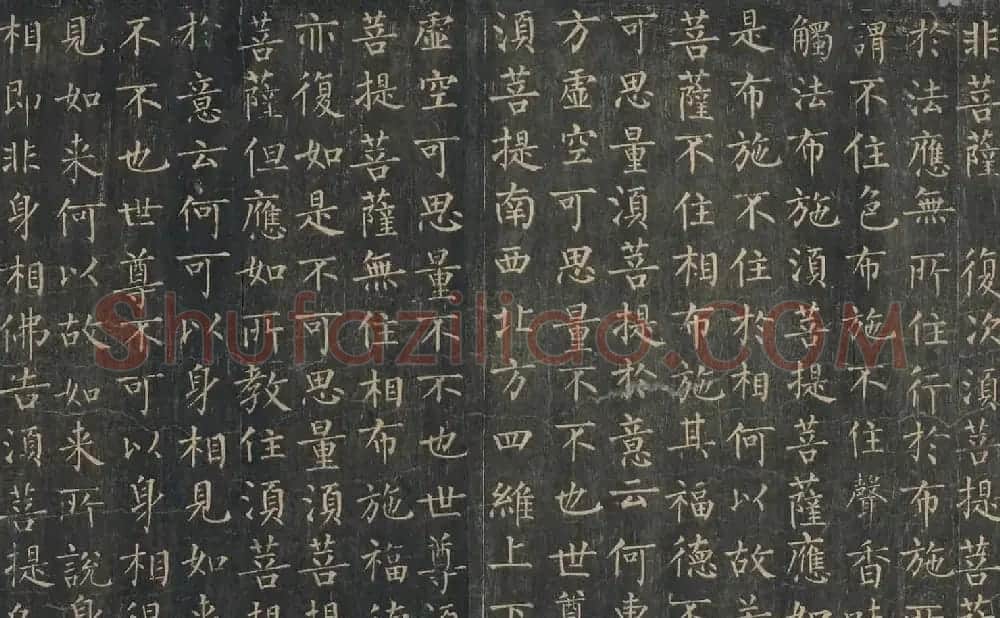 非菩薩 復次須菩提菩薩
於法應無所住行於布施所
謂不住色布施不住聲香味
觸法布施須菩提菩薩應如
是布施不住於相何以故若
菩薩不住相布施其福德不
可思量須菩提於意云何東
方虛空可思量不不也世尊
須菩提南西北方四維上下
虛空可思量不不也世尊須
菩提菩薩無住相布施福德
亦復如是不可思量須菩提
菩薩但應如所教住須菩提
於意云何可以身相見如来
不不也世尊不可以身相得
見如来何以故如来所說身
相即非身相佛告須菩提
Shufaziliao.COM